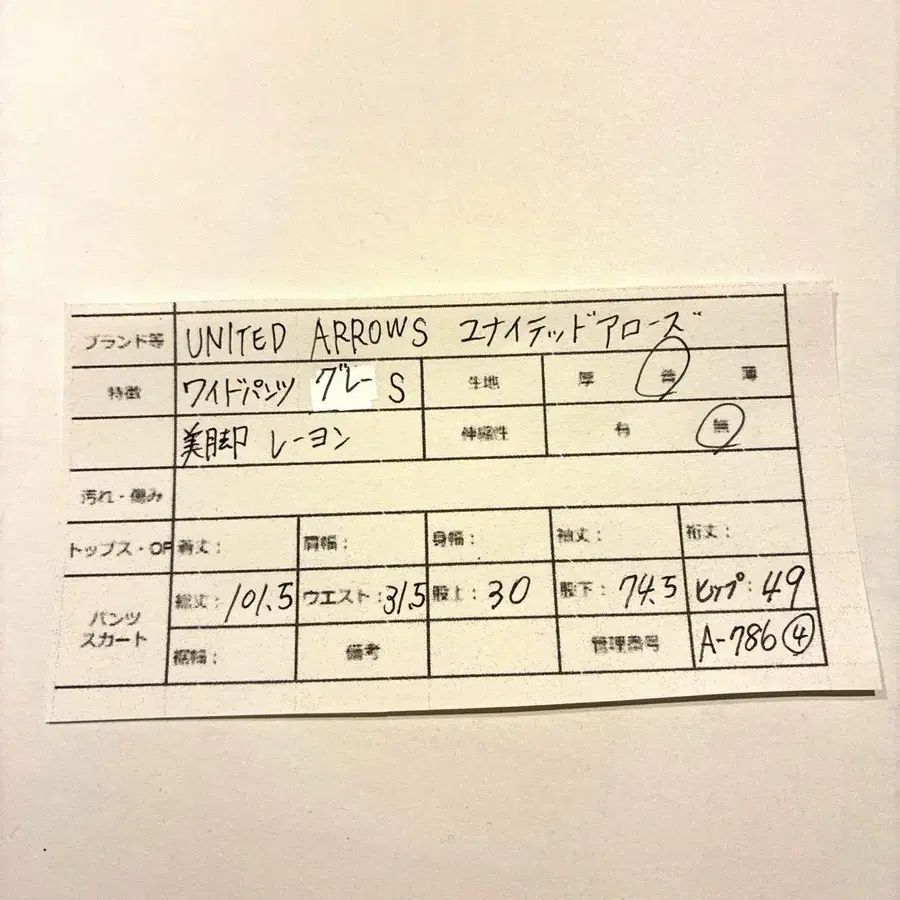 ブランド等 UNITED ARROWS ユナイテッドアローズ
特徴 ワイドパンツ グレー S 生地 厚 普 薄
美脚 レーヨン 伸縮性 有 無
汚れ・傷み
トップス・OP 着丈: 肩幅: 身幅: 袖丈: 裄丈:
パンツ スカート 総丈: 101.5 ウエスト: 31.5 股上: 30 股下: 74.5 ヒップ: 49
裾幅: 備考 管理番号 A-786④